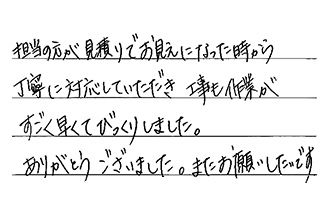 担当の方が見積りでお見えになった時から
丁寧に対応していただき 工事も作業が
すごく早くてびっくりしました。
ありがとうございました。またお願いしたいです